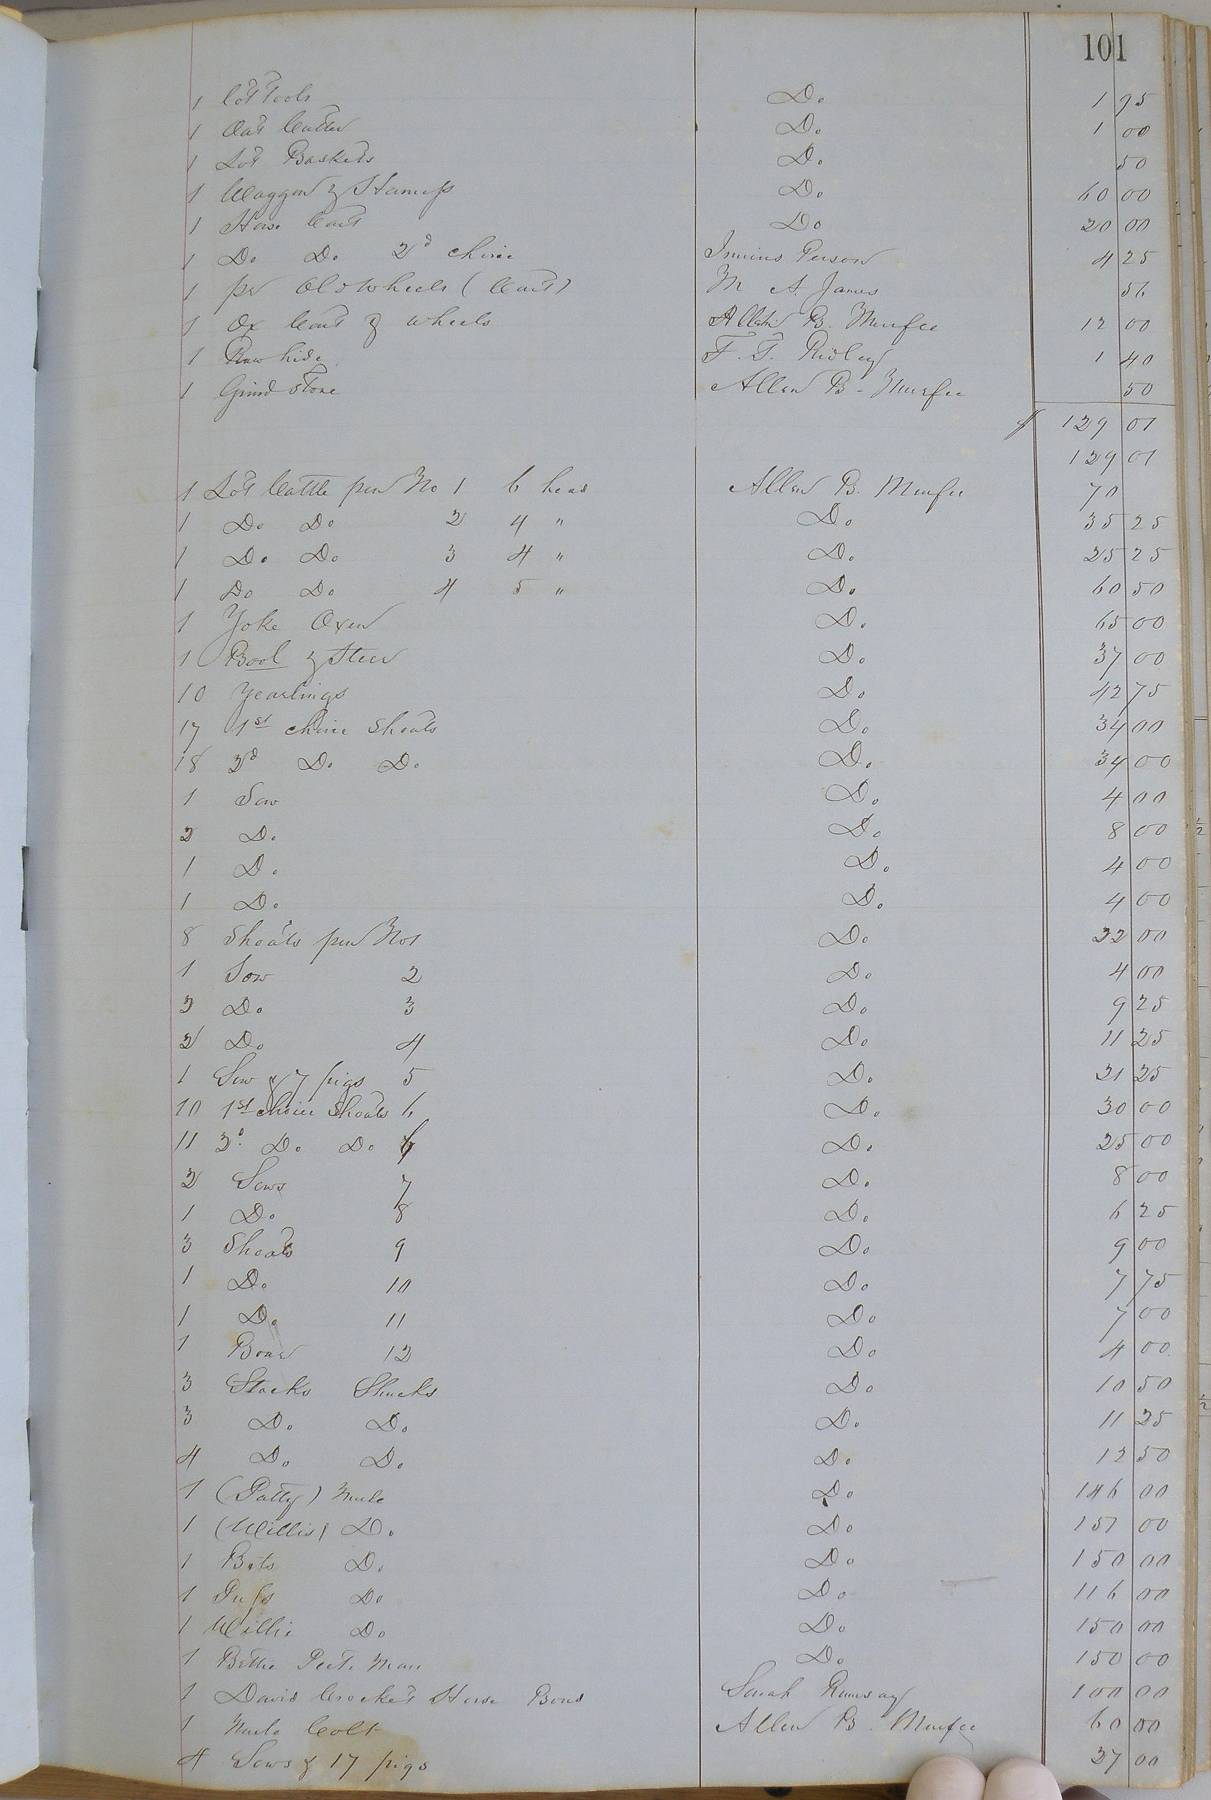 101
1 Lot Tools Do 1 95
1 Oat Cutter Do 1 00
1 Lot Baskets Do 50
1 Waggon & Harness Do 60 00
1 Horse Cart Do 20 00
1 Do Do 2d choice Person 4 25
1 pr Old Wheels (Cart) M A. James 56
1 Ox Cart & Wheels Allen B. Murfee 12 00
1 Raw hide F. T. Ridley 1 40
1 Grind Stone Allen B. Murfee 50
$ 129 01
129 01
1 Lot Cattle pen No 1 6 head Allen B. Murfee 70
1 Do Do 2 4 " Do 35 25
1 Do Do 3 4 " Do 25 25
1 Do Do 4 5 " Do 60 50
1 Yoke Oxen Do 65 00
1 Bool & Steer Do 37 00
10 Yearlings Do 42 75
17 1st choice Shoats Do 34 00
18 2d Do Do Do 34 00
1 Sow Do 4 00
2 Do Do 8 00
1 Do Do 4 00
1 Do Do 4 00
8 Shoats pen No 1 Do 22 00
1 Sow 2 Do 4 00
2 Do 3 Do 9 25
2 Do 4 Do 11 25
1 Sow & 7 pigs 5 Do 21 25
10 1st choice Shoats 6 Do 30 00
11 2d Do Do 6 Do 25 00
2 Sows 7 Do 8 00
1 Do 8 Do 6 25
3 Shoats 9 Do 9 00
1 Do 10 Do 7 75
1 Do 11 Do 7 00
1 Boar 12 Do 4 00
3 Stacks Shucks Do 10 50
3 Do Do Do 11 25
4 Do Do Do 12 50
1 (Patty) Mule Do 146 00
1 (Willis) Do Do 151 00
1 Do Do 150 00
1 Do Do 116 00
1 Willie Do Do 150 00
1 Do 150 00
1 David Crocket Horse Sarah Ramsay 100 00
1 Mule Colt Allen B. Murfee 60 00
4 Sows & 17 pigs 27 00